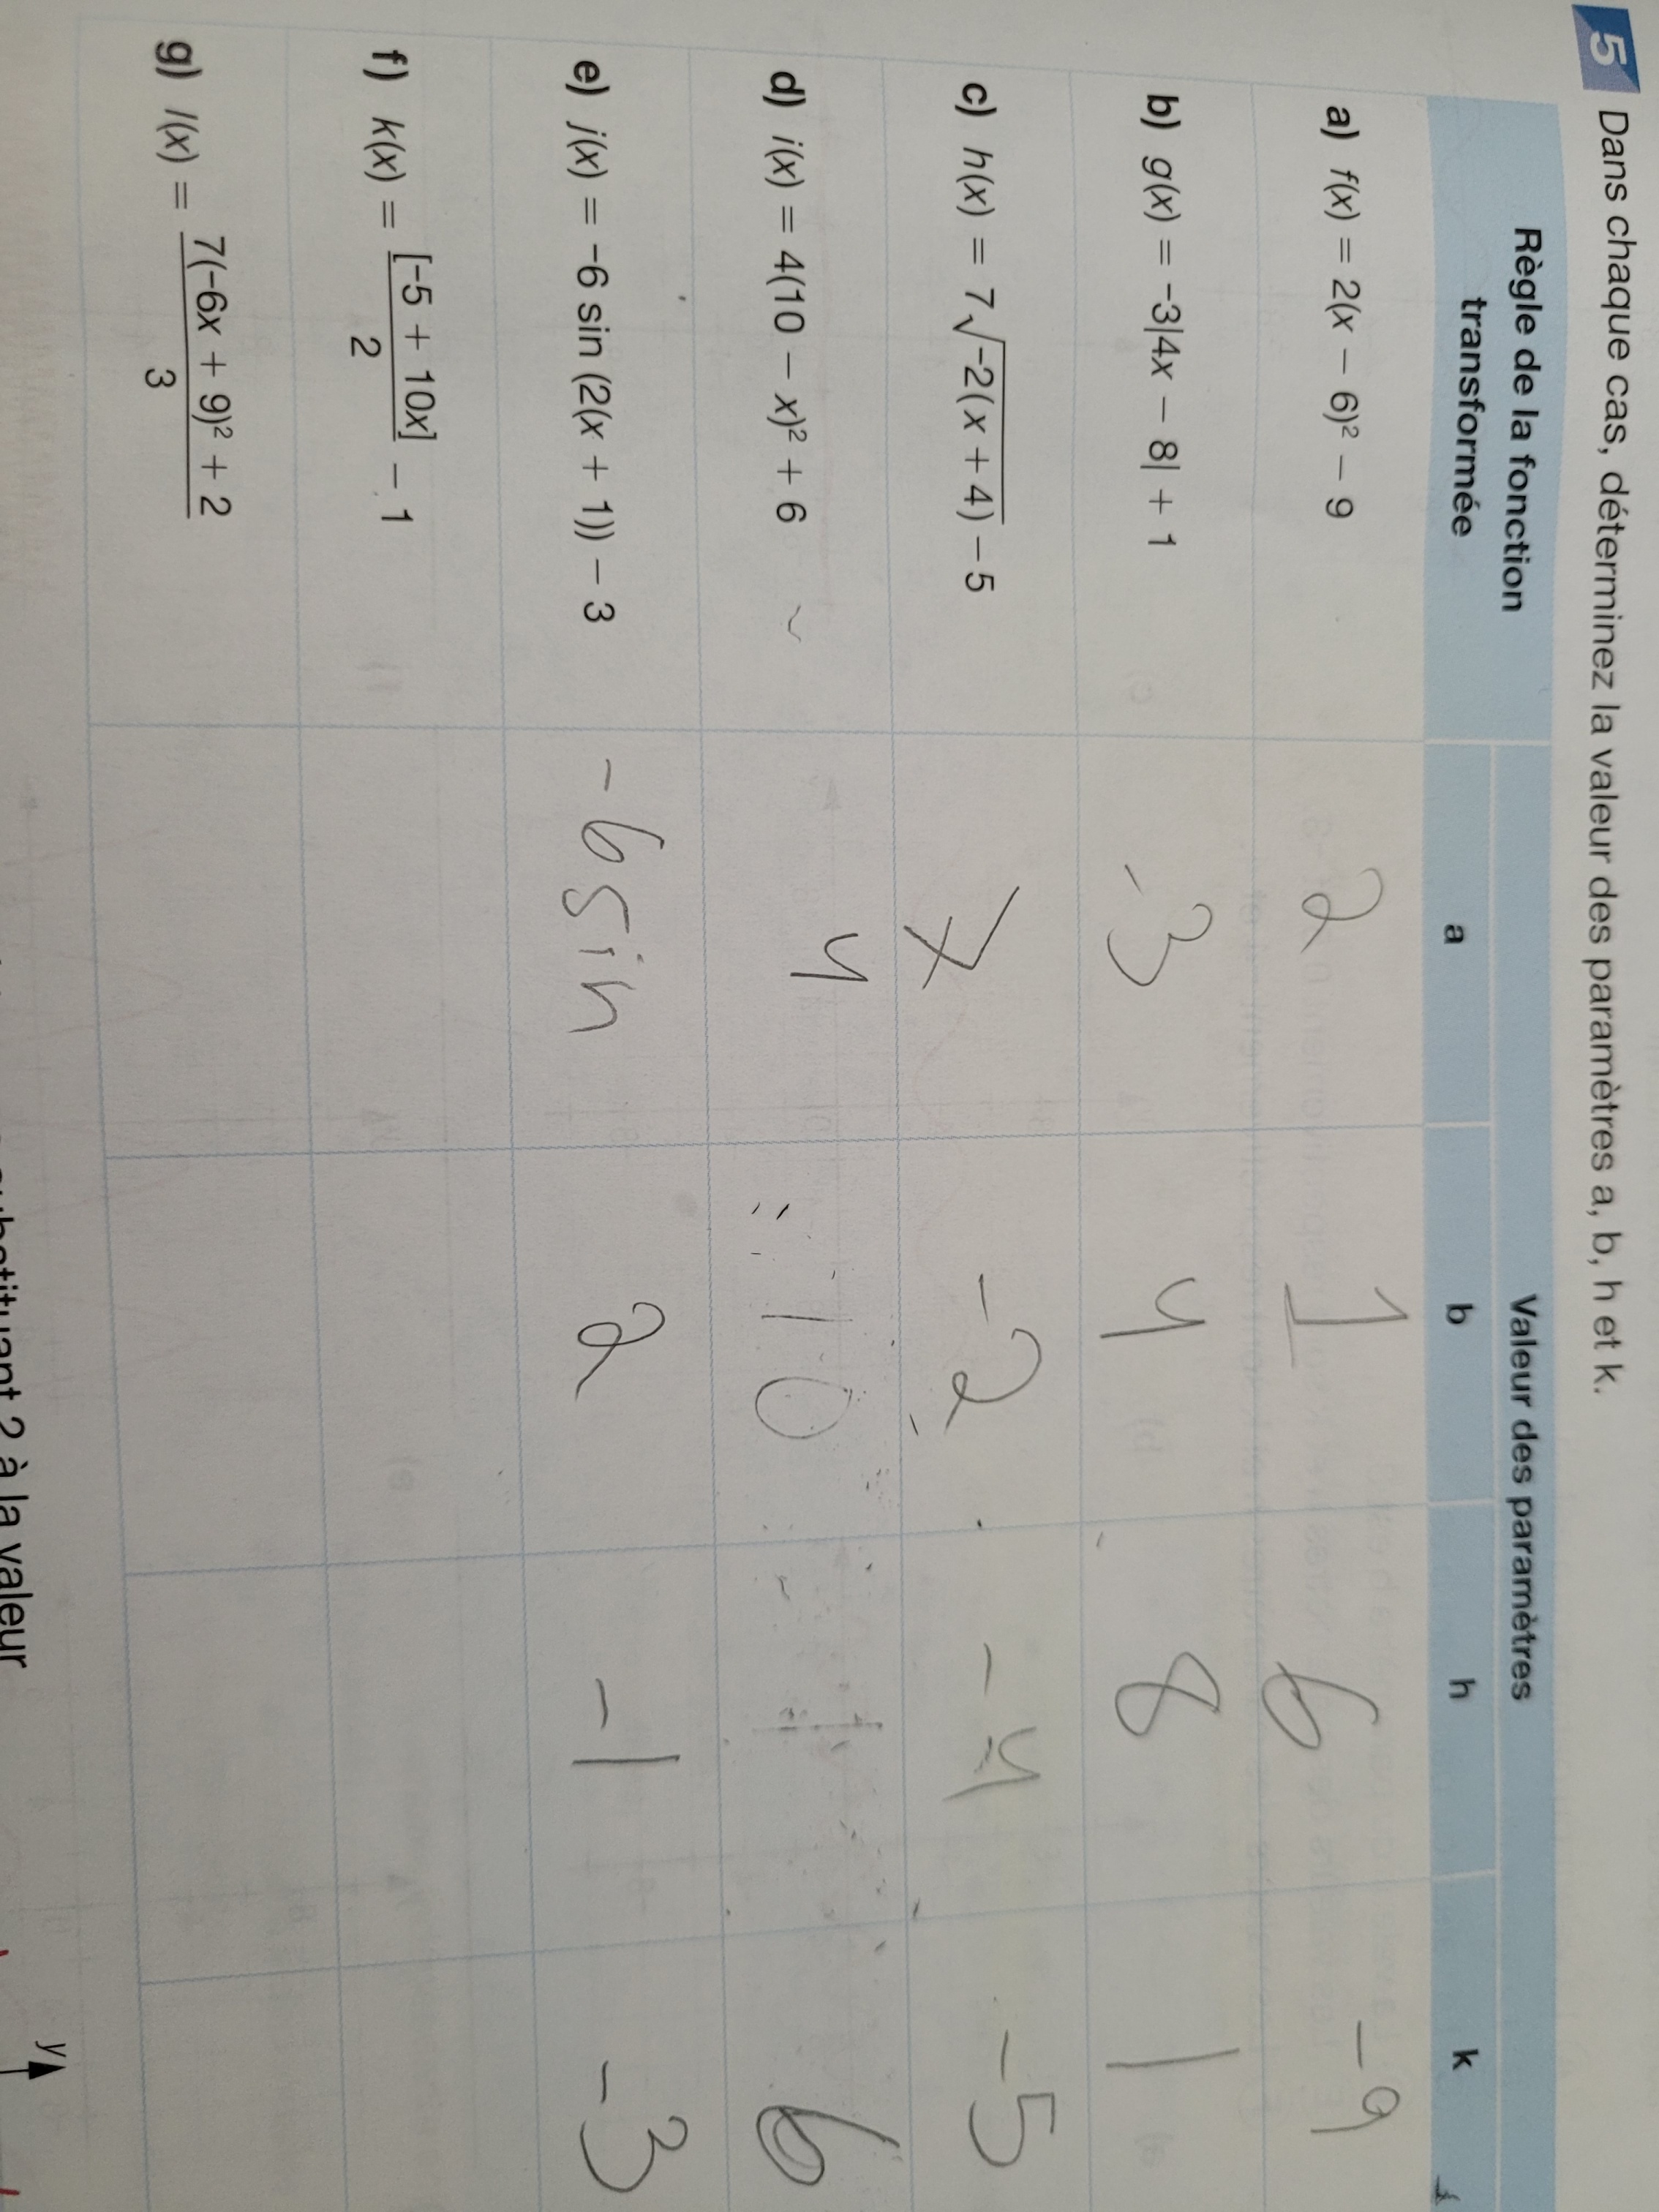 5 Dans chaque cas, déterminez la valeur des paramètres a, b, h et k.
Règle de la fonction transformée
Valeur des paramètres
a b h k
a) f(x) = 2(x – 6)² – 9 2 1 6 -9
b) g(x) = -3|4x – 8| + 1 -3 4 8 1
c) h(x) = 7√-2(x + 4) – 5 7 -2 -4 -5
d) i(x) = 4(10 – x)² + 6 4 10 6
e) j(x) = -6 sin (2(x + 1)) – 3 -6 sin 2 -1 -3
f) k(x) = [-5 + 10x]/2 – 1
g) l(x) = 7(-6x + 9)² + 2/3
substituant 2 à la valeur
y